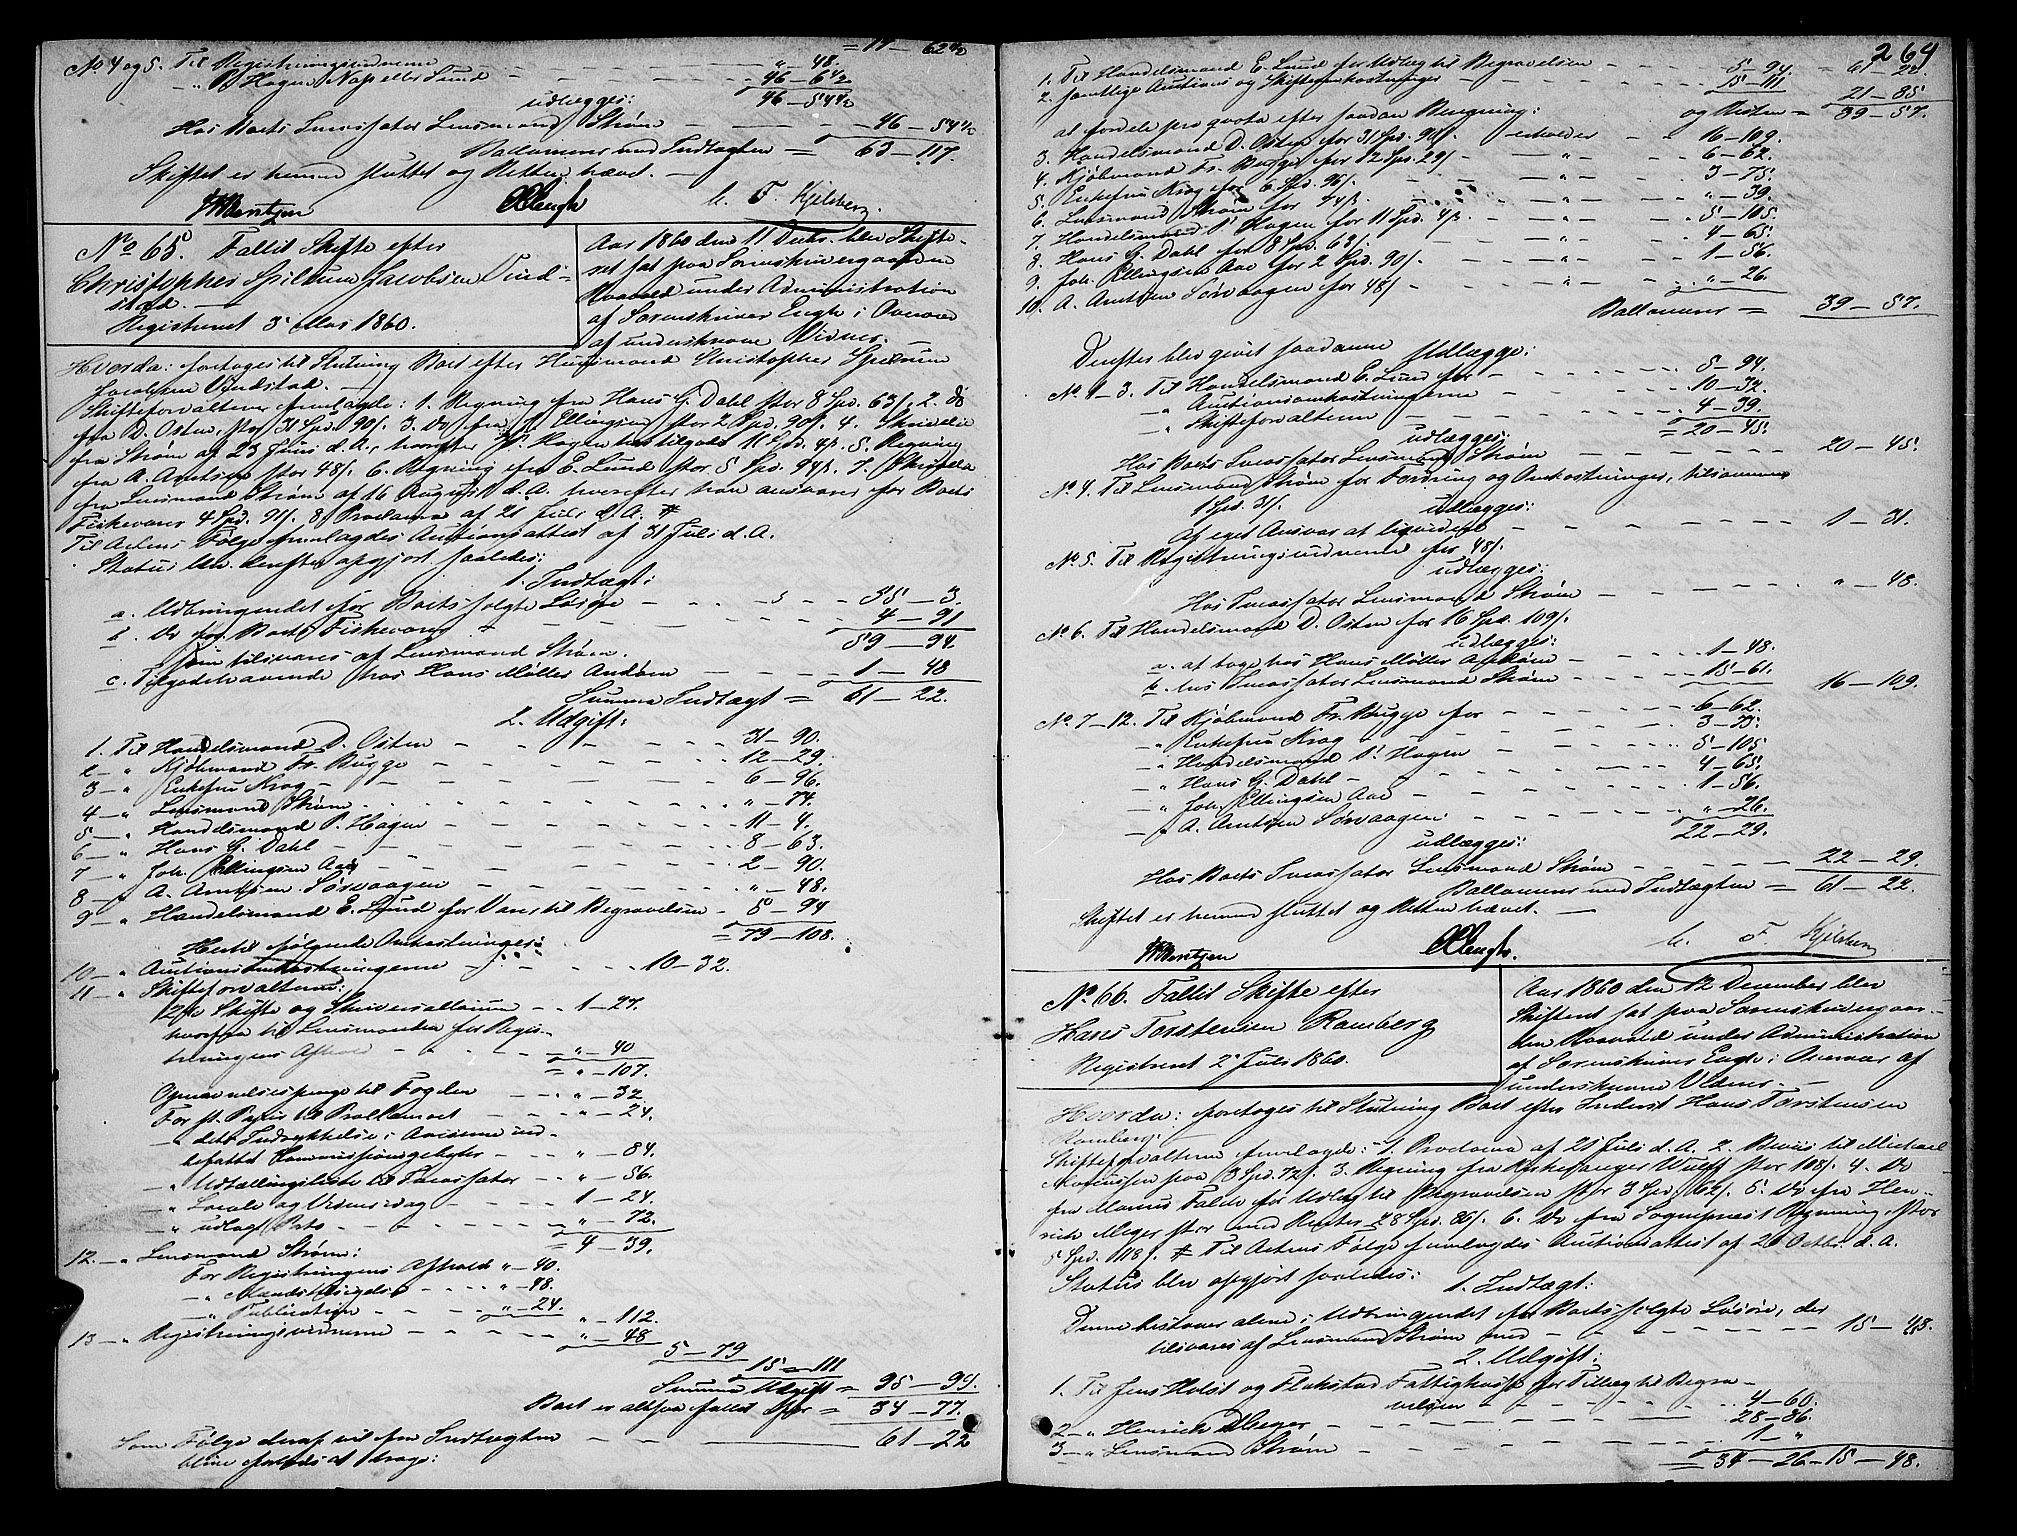 = 17 — 62½
No 4 og 5. Til Registreringsvidnerne — „ — 48.
— „ P. Hagen Napellsund — 46 — 6½
46 — 54½
udlægges:
Hos Boets Incassator Lensmand Strøm — 46 — 54½
Ballancerer med Indtægten = 63 — 117.
Skiftet er hermed sluttet og Retten hævet.
F. Kjelsberg
No 65. Fallit Skifte efter
Christopher Spilum Jacobsen Vind-
stad.
Registreret 3 Mai 1860.
Aar 1860 den 11 Decbr. blev Skifte-
ret sat paa Sorenskrivergaarden
under Administration
af Sorenskriver Engh i Overvær
af underskrevne Vidner.
Hvorda: foretoges til Slutning Boet efter Husmand Christopher Spilum
Jacobsen Vindstad.
Skifteforvalteren fremlagde: 1. Regning fra Hans G. Dahl stor 8 Spd. 63/. 2. Do
fra D. Osten, stor 31 Spd. 90/. 3. Do fra J. Ellingsen stor 2 Spd. 90/. 4. Skrivelse
fra Strøm af 23 Juni d. A., hvorefter P. Hagen har tilgode 11 Spd. 4/. 5. Regning
fra A. Arntsen stor 48/. 6. Regning fra E. Lund stor 5 Spd. 94/. 7. Skrivelse
fra Lensmand Strøm af 16 August d. A. hvorefter han ansvarer for Boets
Fiskevarer 4 Spd. 91/. 8. Proclama af 21 Juli d. A.
Til Actens Følge fremlagdes Auctionsattest af 31 Juli d. A.
Status blev derefter opgjort saaledes:
1. Indtægt:
a. Udbringendet for Boets solgte Løsøre — 55 — 3.
b. Do for Boets Fiskevarer — 4 — 91
59 — 94.
som tilsvares af Lensmand Strøm.
c. Tilgodehavende hos Hans Møller Andøen — 1 — 48
Summa Indtægt = 61 — 22.
2. Udgift:
1. Til Handelsmand D. Osten — 31 — 90.
2 — „ Kjøbmand Fr. Bugge — 12 — 29.
3 — „ Enkefru Krog — 6 — 96.
4 — „ Lensmand Strøm — „ — 74.
5 — „ Handelsmand P. Hagen — 11 — 4.
6 — „ Hans G. Dahl — 8 — 63.
7 — „ Joh. Ellingsen Aae — 2 — 90.
8 — „ A. Arntsen Sørvaagen — „ — 48.
9 — „ Handelsmand E. Lund for Varer til Begravelsen — 5 — 94
= 79 — 108.
Hertil følgende Omkostninger:
10 — „ Auctionsomkostningerne — 10 — 32.
11 — „ Skifteforvalteren:
Skifte og Skriversallarium — 1 — 27.
herfra til Lensmanden for Regis-
treringens Afhold — „ — 40
= „ — 107.
til Fogden — „ — 32
For st. Papir til Proclamaet — „ — 24.
— „ dets Indrykkelse i Aviserne ind-
befattet Commissionsgebyhr — „ — 84.
— „ Udtællingsliste til Incassator — „ — 56.
— „ Locale og Vidnersdag — 1 — 24.
— „ udlagt Porto — „ — 72.
= 4 — 39.
12. — „ Lensmand Strøm:
For Registreringens Afhold „ — 40.
— „ — 48.
— „ Publication — „ — 24.
„ — 112.
13 — „ Registreringsvidnerne — „ — 48
5 — 79
15 — 111
Summa Udgift = 95 — 99.
Boet er altsaa fallit for = 34 — 77.
Som Følge deraf vil fra Indtægten — 61 — 22
blive forlods at drage:
264
1. Til Handelsmand E. Lund for Udlæg til Begravelsen — 5 — 94. = 61 — 22.
2. samtlige Auctions og Skifteomkostninger — 15 — 111
21 — 85
og Resten = 39 — 57.
at fordele pro qvota efter saadan Beregning:
3. Handelsmand D. Osten for 31 Spd. 90/. — erholder — 16 — 109.
4. Kjøbmand Fr. Bugge for 12 Spd. 29/. — „ — 6 — 62.
5. Enkefru Krog for 6 Spd. 96/. — „ — 3 — 75.
6. Lensmand Strøm for 74/. — „ — „ — 39.
7. Handelsmand P. Hagen for 11 Spd. 4/. — „ — 5 — 105.
8. Hans G. Dahl for 8 Spd. 63/. — „ — 4 — 65.
9. Joh. Ellingsen Aae for 2 Spd. 90/. — „ — 1 — 56.
10. A. Arntsen Sørvaagen for 48/. — „ — „ — 26
Ballancerer = 39 — 57.
Derefter blev gjort saadanne Udlægge:
No. 1 — 3. Til Handelsmand E. Lund for — 5 — 94.
— „ Auctionsomkostningerne — 10 — 32.
— „ Skifteforvalteren — 4 — 39.
= 20 — 45.
udlægges:
Hos Boets Incassator Lensmand Strøm — 20 — 45.
No 4. Til Lensmand Strøm for Fordring og Omkostninger, tilsammen
1 Spd. 31/. udlægges:
Af eget Ansvar at liqvidere — 1 — 31.
No 5. Til Registreringsvidnerne for 48/.
udlægges:
Hos Incassator Lensmand Strøm — „ — 48.
No 6. Til Handelsmand D. Osten for 16 Spd. 109/.
udlægges:
a. at tage hos Hans Møller Andøen — 1 — 48.
b. hos Incassator Lensmand Strøm — 15 — 61.
16 — 109.
No. 7 — 12. Til Kjøbmand Fr. Bugge for — 6 — 62.
— „ Enkefru Krog — 3 — 75.
— „ Handelsmand P. Hagen — 5 — 105
— „ Hans G. Dahl — 4 — 65.
— „ Joh. Ellingsen Aae — 1 — 56.
— „ A. Arntsen Sørvaagen — „ — 26.
22 — 29.
udlægges:
Hos Boets Incassator Lensmand Strøm — 22 — 29.
Ballancerer med Indtægten = 61 — 22.
Skiftet er hermed sluttet og Retten hævet.
F. Kjelsberg
No 66. Fallit Skifte efter
Hans Torstensen Ramberg
Registreret 2 Juli 1860.
Aar 1860 den 12 December blev
Skifteret sat paa Sorenskrivergaar-
den under Administration
af Sorenskriver Engh i Overvær af
underskrevne Vidner.
Hvorda: foretoges til Slutning Boet efter Inderst Hans Torstensen
Ramberg.
Skifteforvalteren fremlagde: 1. Proclama af 21 Juli d. A. 2. Beviis til Michael
paa 3 Spd. 72/. 3. Regning fra Kirkesanger Wulff stor 108/. 4. Do
fra for Udlæg til Begravelsen stor 3 Spd. 62/. 5. Do fra Hen-
rich Meyer stor med Renter 28 Spd. 86/. 6. Do fra Sogneprest stor
5 Spd. 118/. Til Actens Følge fremlagdes Auctionsattest af 26 Octbr. d. A.
Status blev opgjort saaledes:
1. Indtægt:
Denne bestaaer alene i Udbringendet for Boets solgte Løsøre, der
tilsvares af Lensmand Strøm med — 15 — 48.
2. Udgift:
1. Til Jens Holst og Flakstad Fattigkasse for Tillæg til Begra-
velsen — 4 — 60.
2 — „ Henrich Meyer — 28 — 86.
3 — „ Lensmand Strøm — 1 — „
= 34 — 26 — 15 — 48.